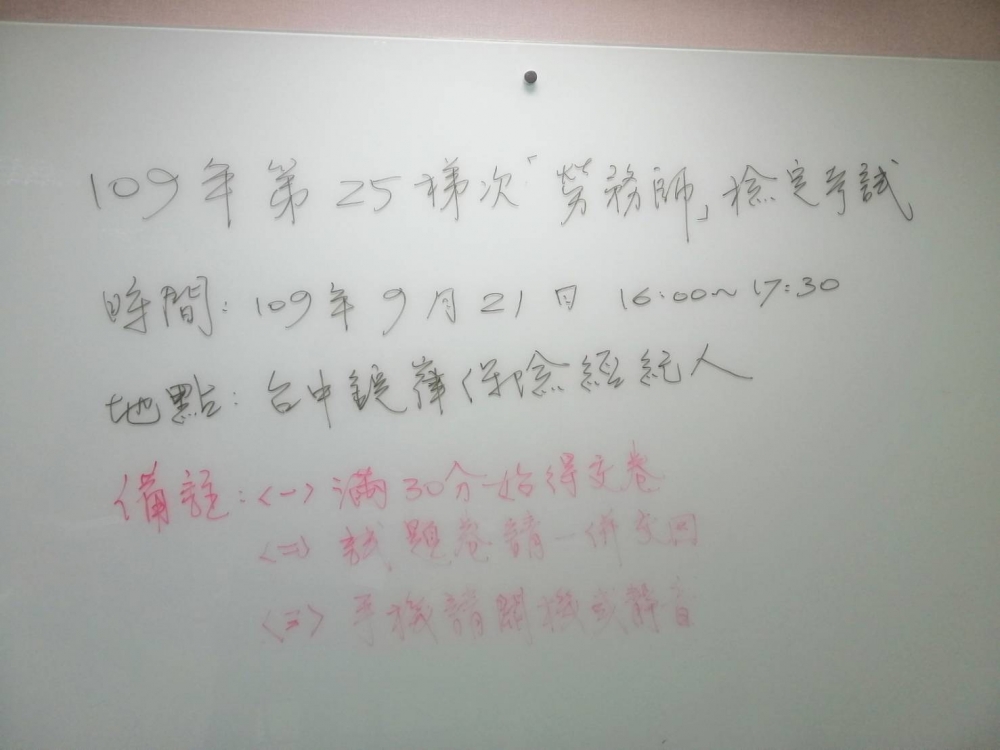 109年第25梯次「勞務師」檢定考試
時間：109年9月21日 16:00~17:30
地點：台中錠嵂保險經紀人
備註：<一>滿30分始得交卷
<二>試題卷請一併交回
<三>手機請關機或靜音